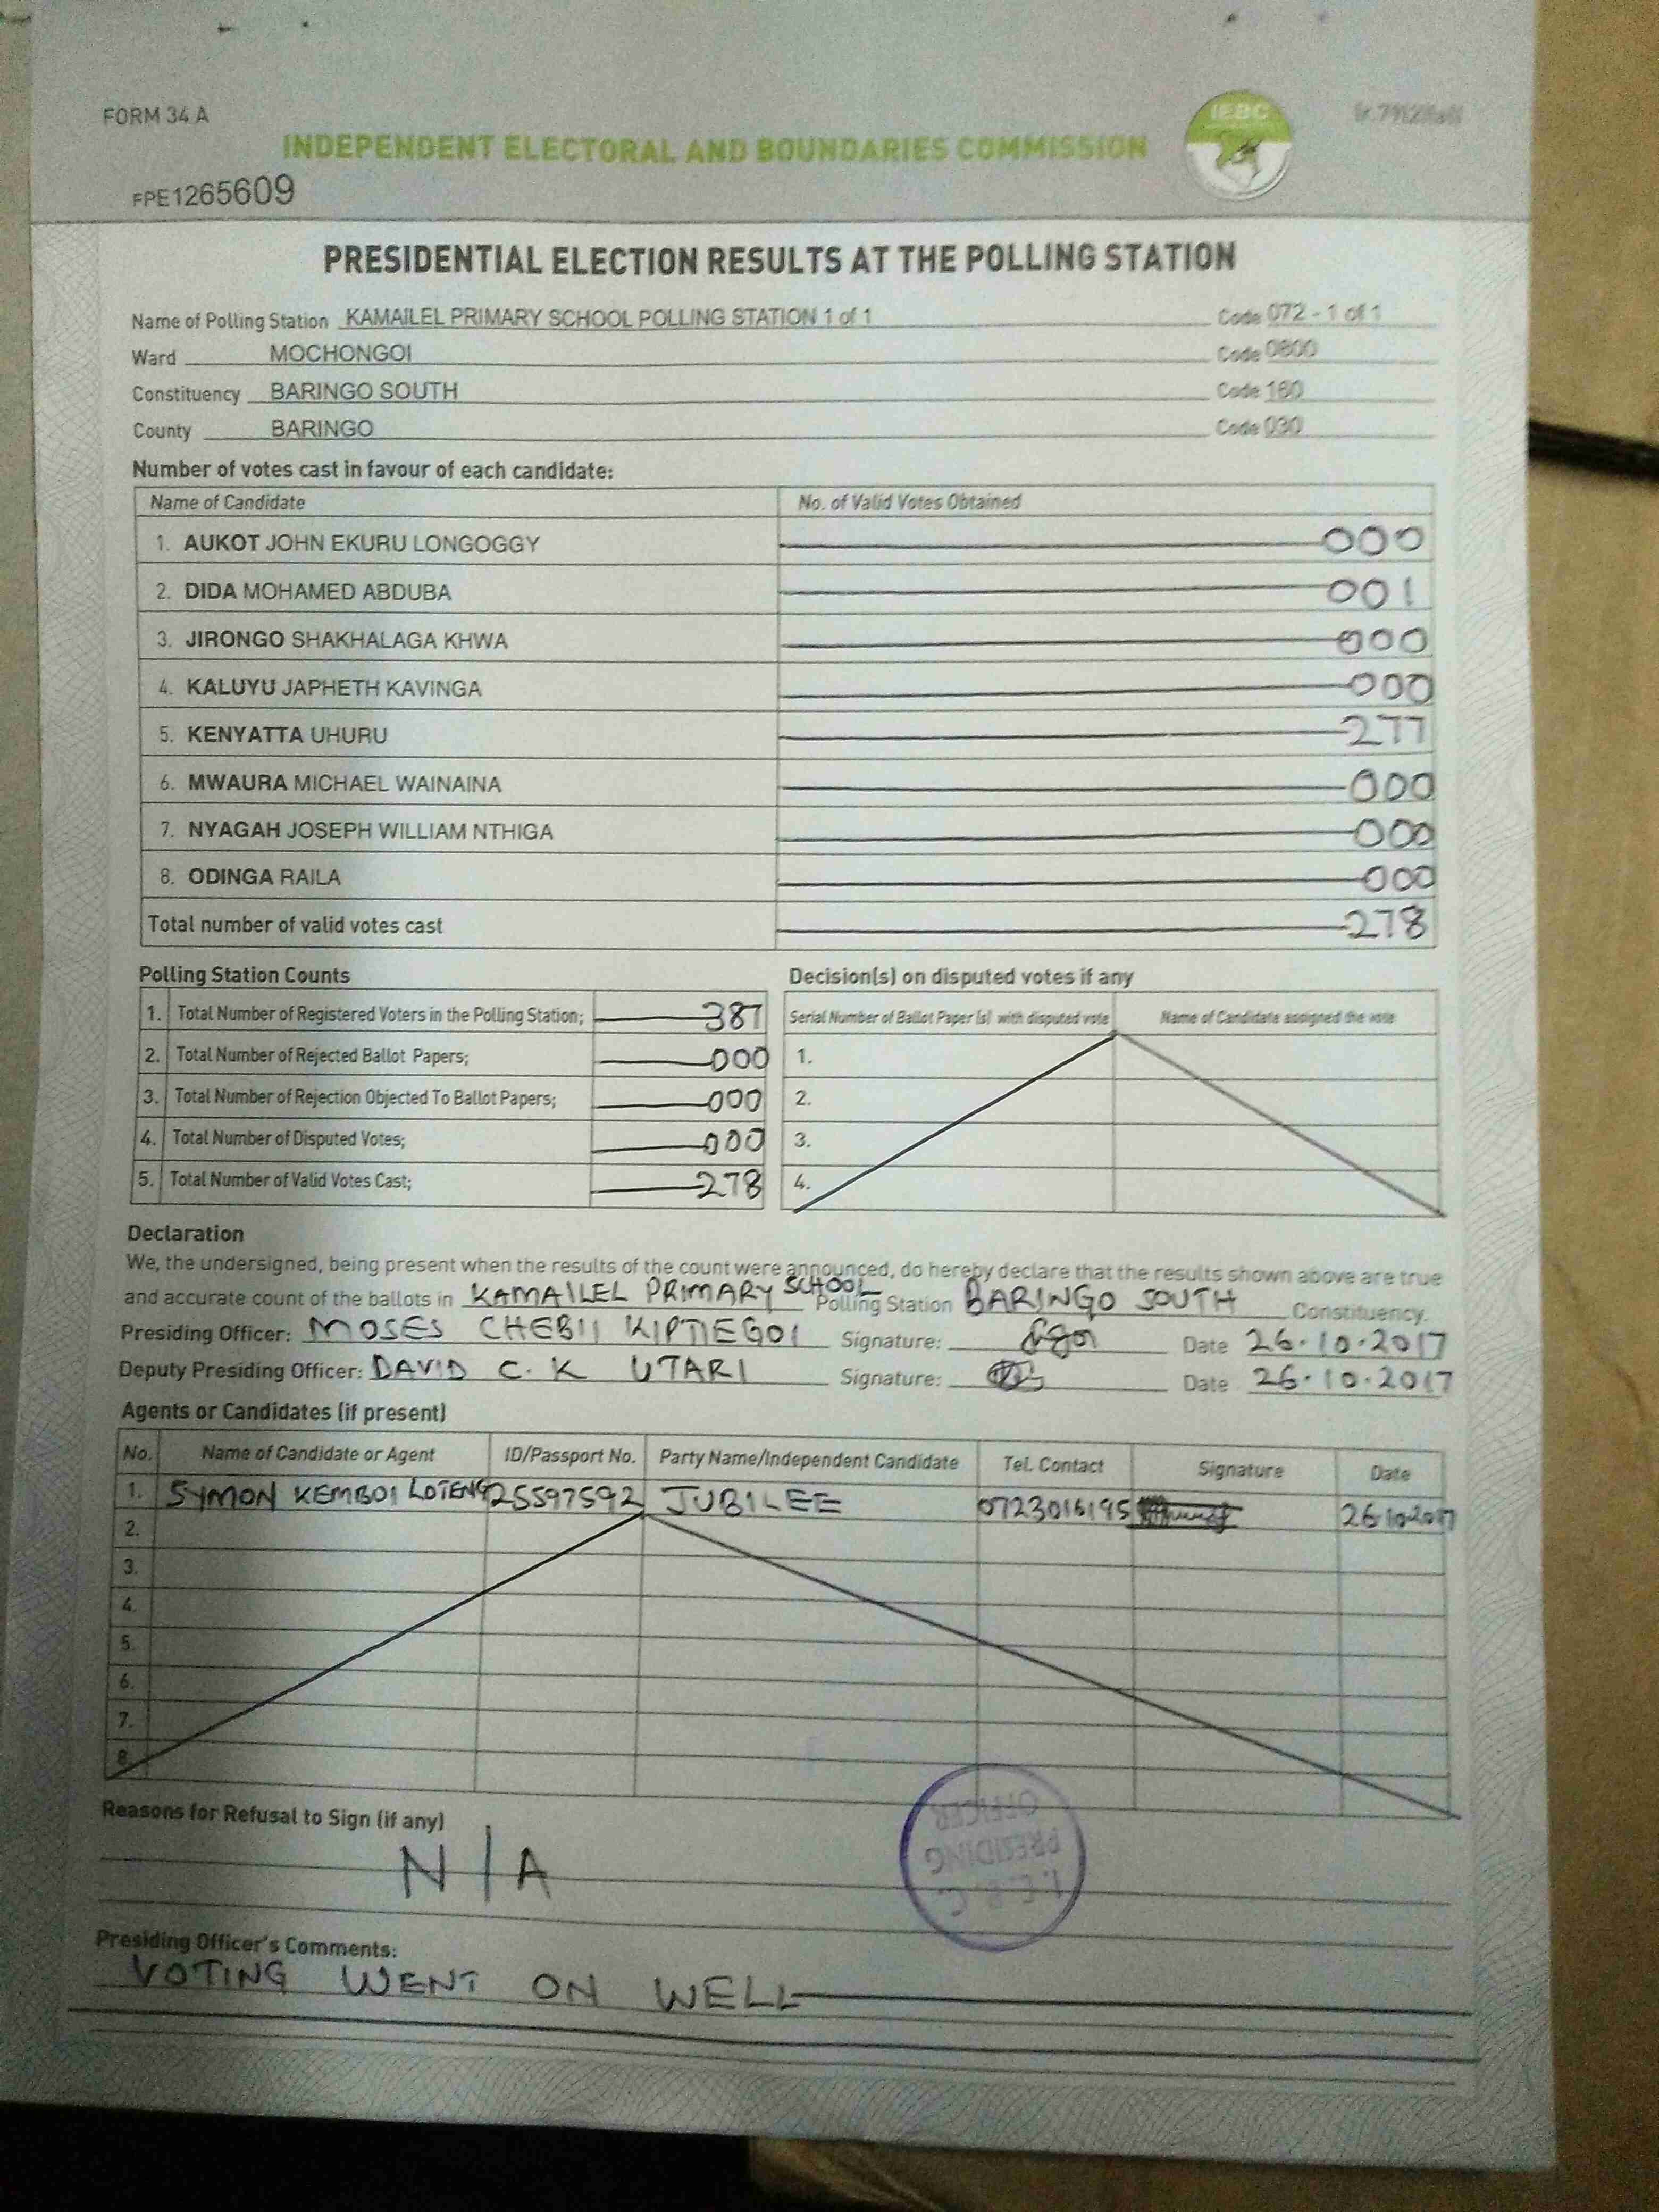 FORM 34 A
IEBC
INDEPENDENT ELECTORAL AND BOUNDARIES COMMISSION
FPE1265609
PRESIDENTIAL ELECTION RESULTS AT THE POLLING STATION
Name of Polling Station KAMAILEL PRIMARY SCHOOL POLLING STATION 1 of 1 Code 072 - 1 of 1
Ward MOCHONGOI Code 0800
Constituency BARINGO SOUTH Code 160
County BARINGO Code 030
Number of votes cast in favour of each candidate:
Name of Candidate No. of Valid Votes Obtained
1. AUKOT JOHN EKURU LONGOGGY 000
2. DIDA MOHAMED ABDUBA 001
3. JIRONGO SHAKHALAGA KHWA 000
4. KALUYU JAPHETH KAVINGA 000
5. KENYATTA UHURU 277
6. MWAURA MICHAEL WAINAINA 000
7. NYAGAH JOSEPH WILLIAM NTHIGA 000
8. ODINGA RAILA 000
Total number of valid votes cast 278
Polling Station Counts
1. Total Number of Registered Voters in the Polling Station; 387
2. Total Number of Rejected Ballot Papers; 000
3. Total Number of Rejection Objected To Ballot Papers; 000
4. Total Number of Disputed Votes; 000
5. Total Number of Valid Votes Cast; 278
Decision(s) on disputed votes if any
Serial Number of Ballot Paper (s) with disputed vote Name of Candidate assigned the vote
1.
2.
3.
4.
Declaration
We, the undersigned, being present when the results of the count were announced, do hereby declare that the results shown above are true
and accurate count of the ballots in KAMAILEL PRIMARY SCHOOL Polling Station BARINGO SOUTH Constituency.
Presiding Officer: MOSES CHEBII KIPTIEGOI Signature: Date 26.10.2017
Deputy Presiding Officer: DAVID C.K UTARI Signature: Date 26.10.2017
Agents or Candidates (if present)
No. Name of Candidate or Agent ID/Passport No. Party Name/Independent Candidate Tel. Contact Signature Date
1. SYMON KEMBOI LOTENG 25597592 JUBILEE 0723016195 26.10.2017
2.
3.
4.
5.
6.
7.
8.
Reasons for Refusal to Sign (if any)
N/A
I.E.B.C.
PRESIDING
OFFICER
Presiding Officer's Comments:
VOTING WENT ON WELL